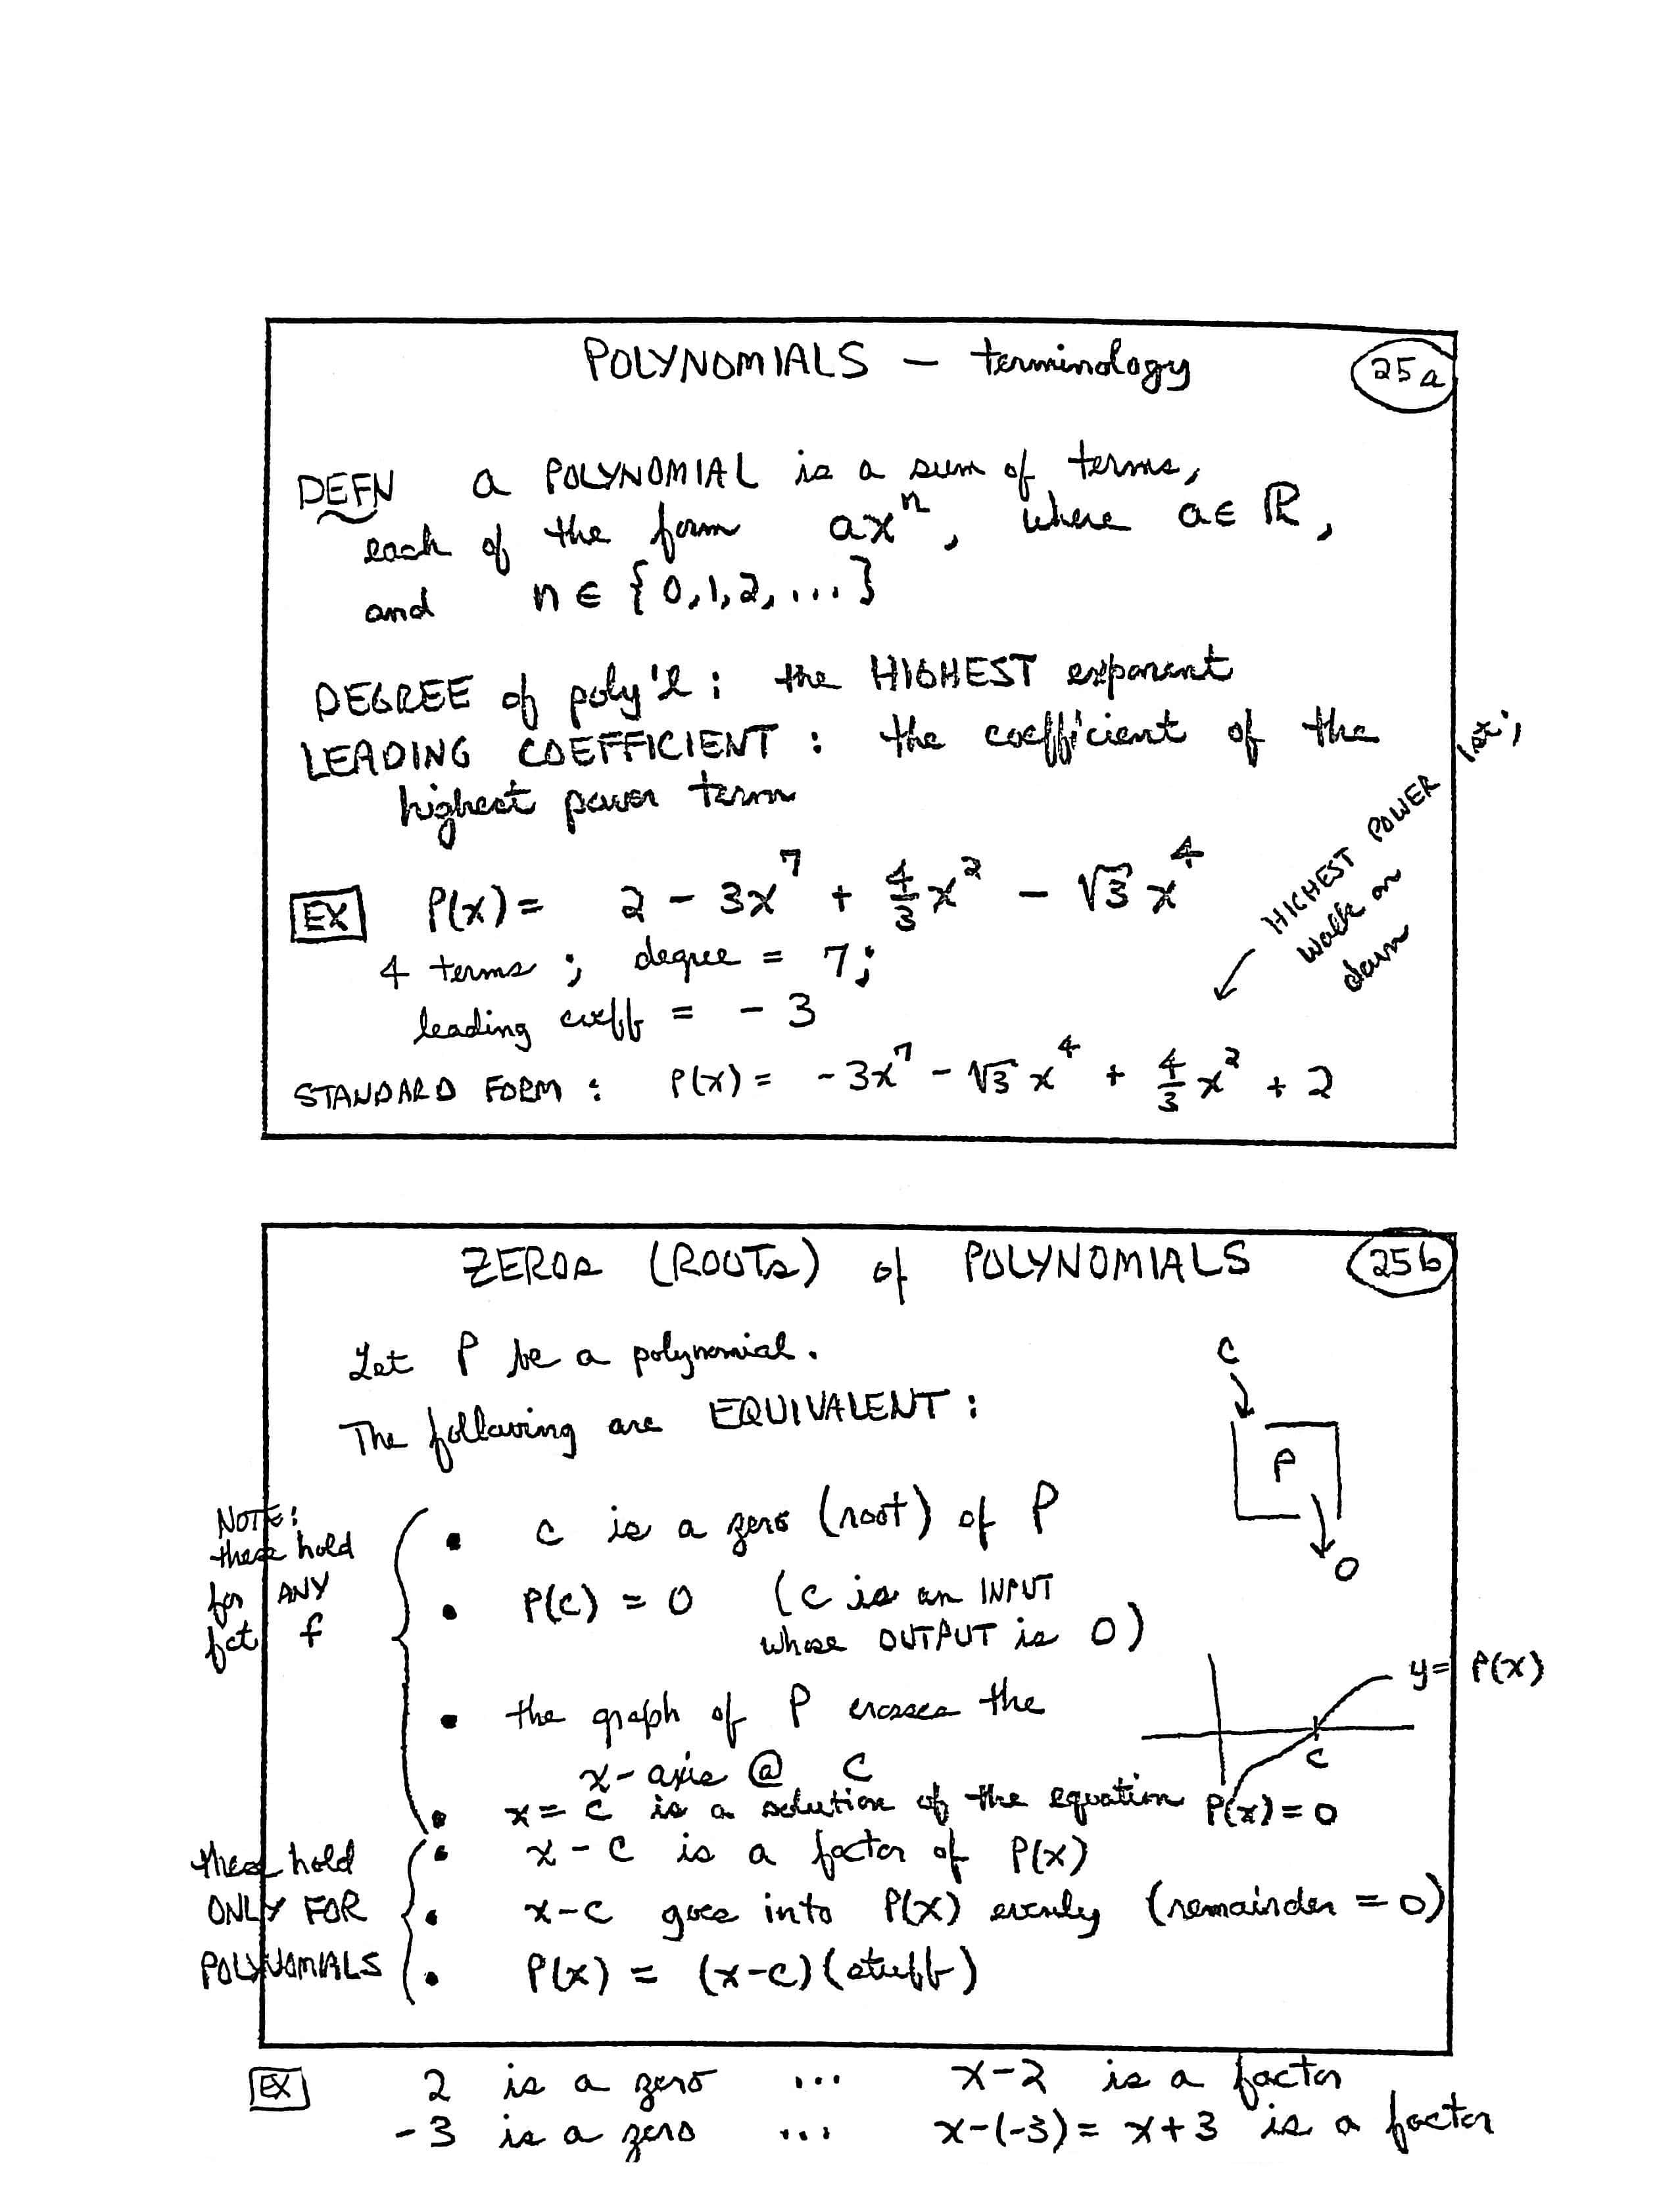 POLYNOMIALS – terminology
25a
DEFN a POLYNOMIAL is a sum of terms,
each of the form axⁿ, where a ∈ ℝ,
and n ∈ {0,1,2, ...}
DEGREE of poly'l : the HIGHEST exponent
LEADING COEFFICIENT : the coefficient of the
highest power term
EX P(x) = 2 - 3x⁷ + 4/3 x² - √3 x⁴
4 terms ; degree = 7;
leading coeff = -3
HIGHEST POWER 1st;
walk on
down
STANDARD FORM : P(x) = -3x⁷ - √3 x⁴ + 4/3 x² + 2
ZEROS (ROOTS) of POLYNOMIALS
25b
Let P be a polynomial.
The following are EQUIVALENT :
c
P
0
NOTE:
these hold
for ANY
fct f
• c is a zero (root) of P
• P(c) = 0 (c is an INPUT
whose OUTPUT is 0)
• the graph of P crosses the
x-axis @ c
y = P(x)
c
• x = c is a solution of the equation P(x) = 0
these hold
ONLY FOR
POLYNOMIALS
• x - c is a factor of P(x)
• x-c goes into P(x) evenly (remainder = 0)
• P(x) = (x-c)(stuff)
EX 2 is a zero ... x-2 is a factor
-3 is a zero ... x-(-3) = x+3 is a factor